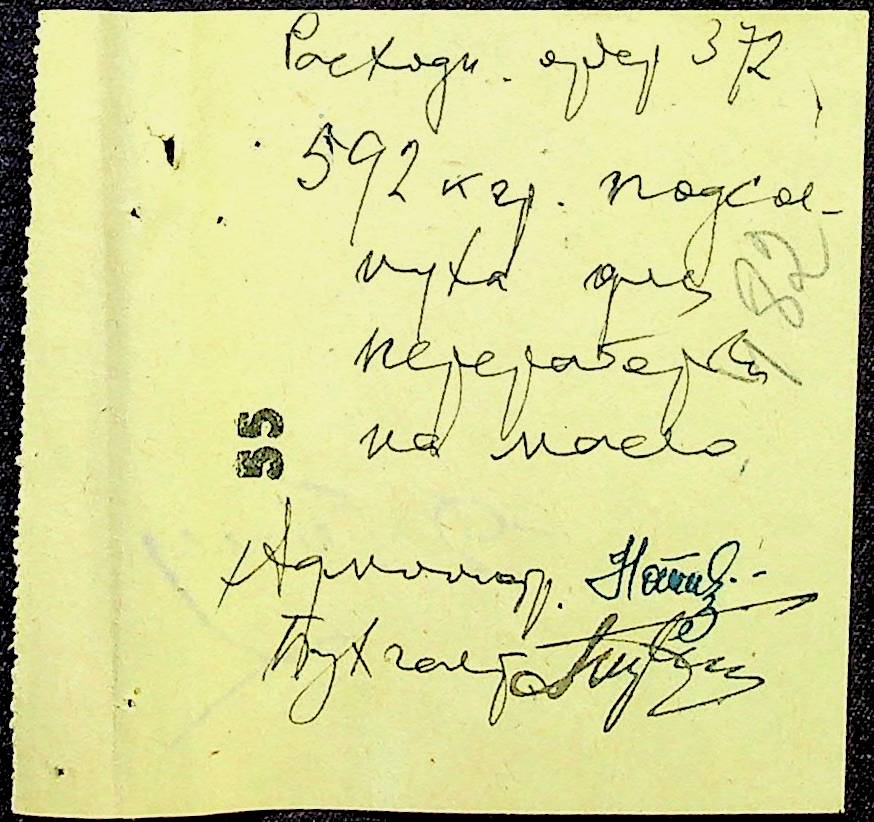 Расходн. ордер 372
592 кгр. подсол-
нуха для
переработки
на масло
182
55
Бухгалтер